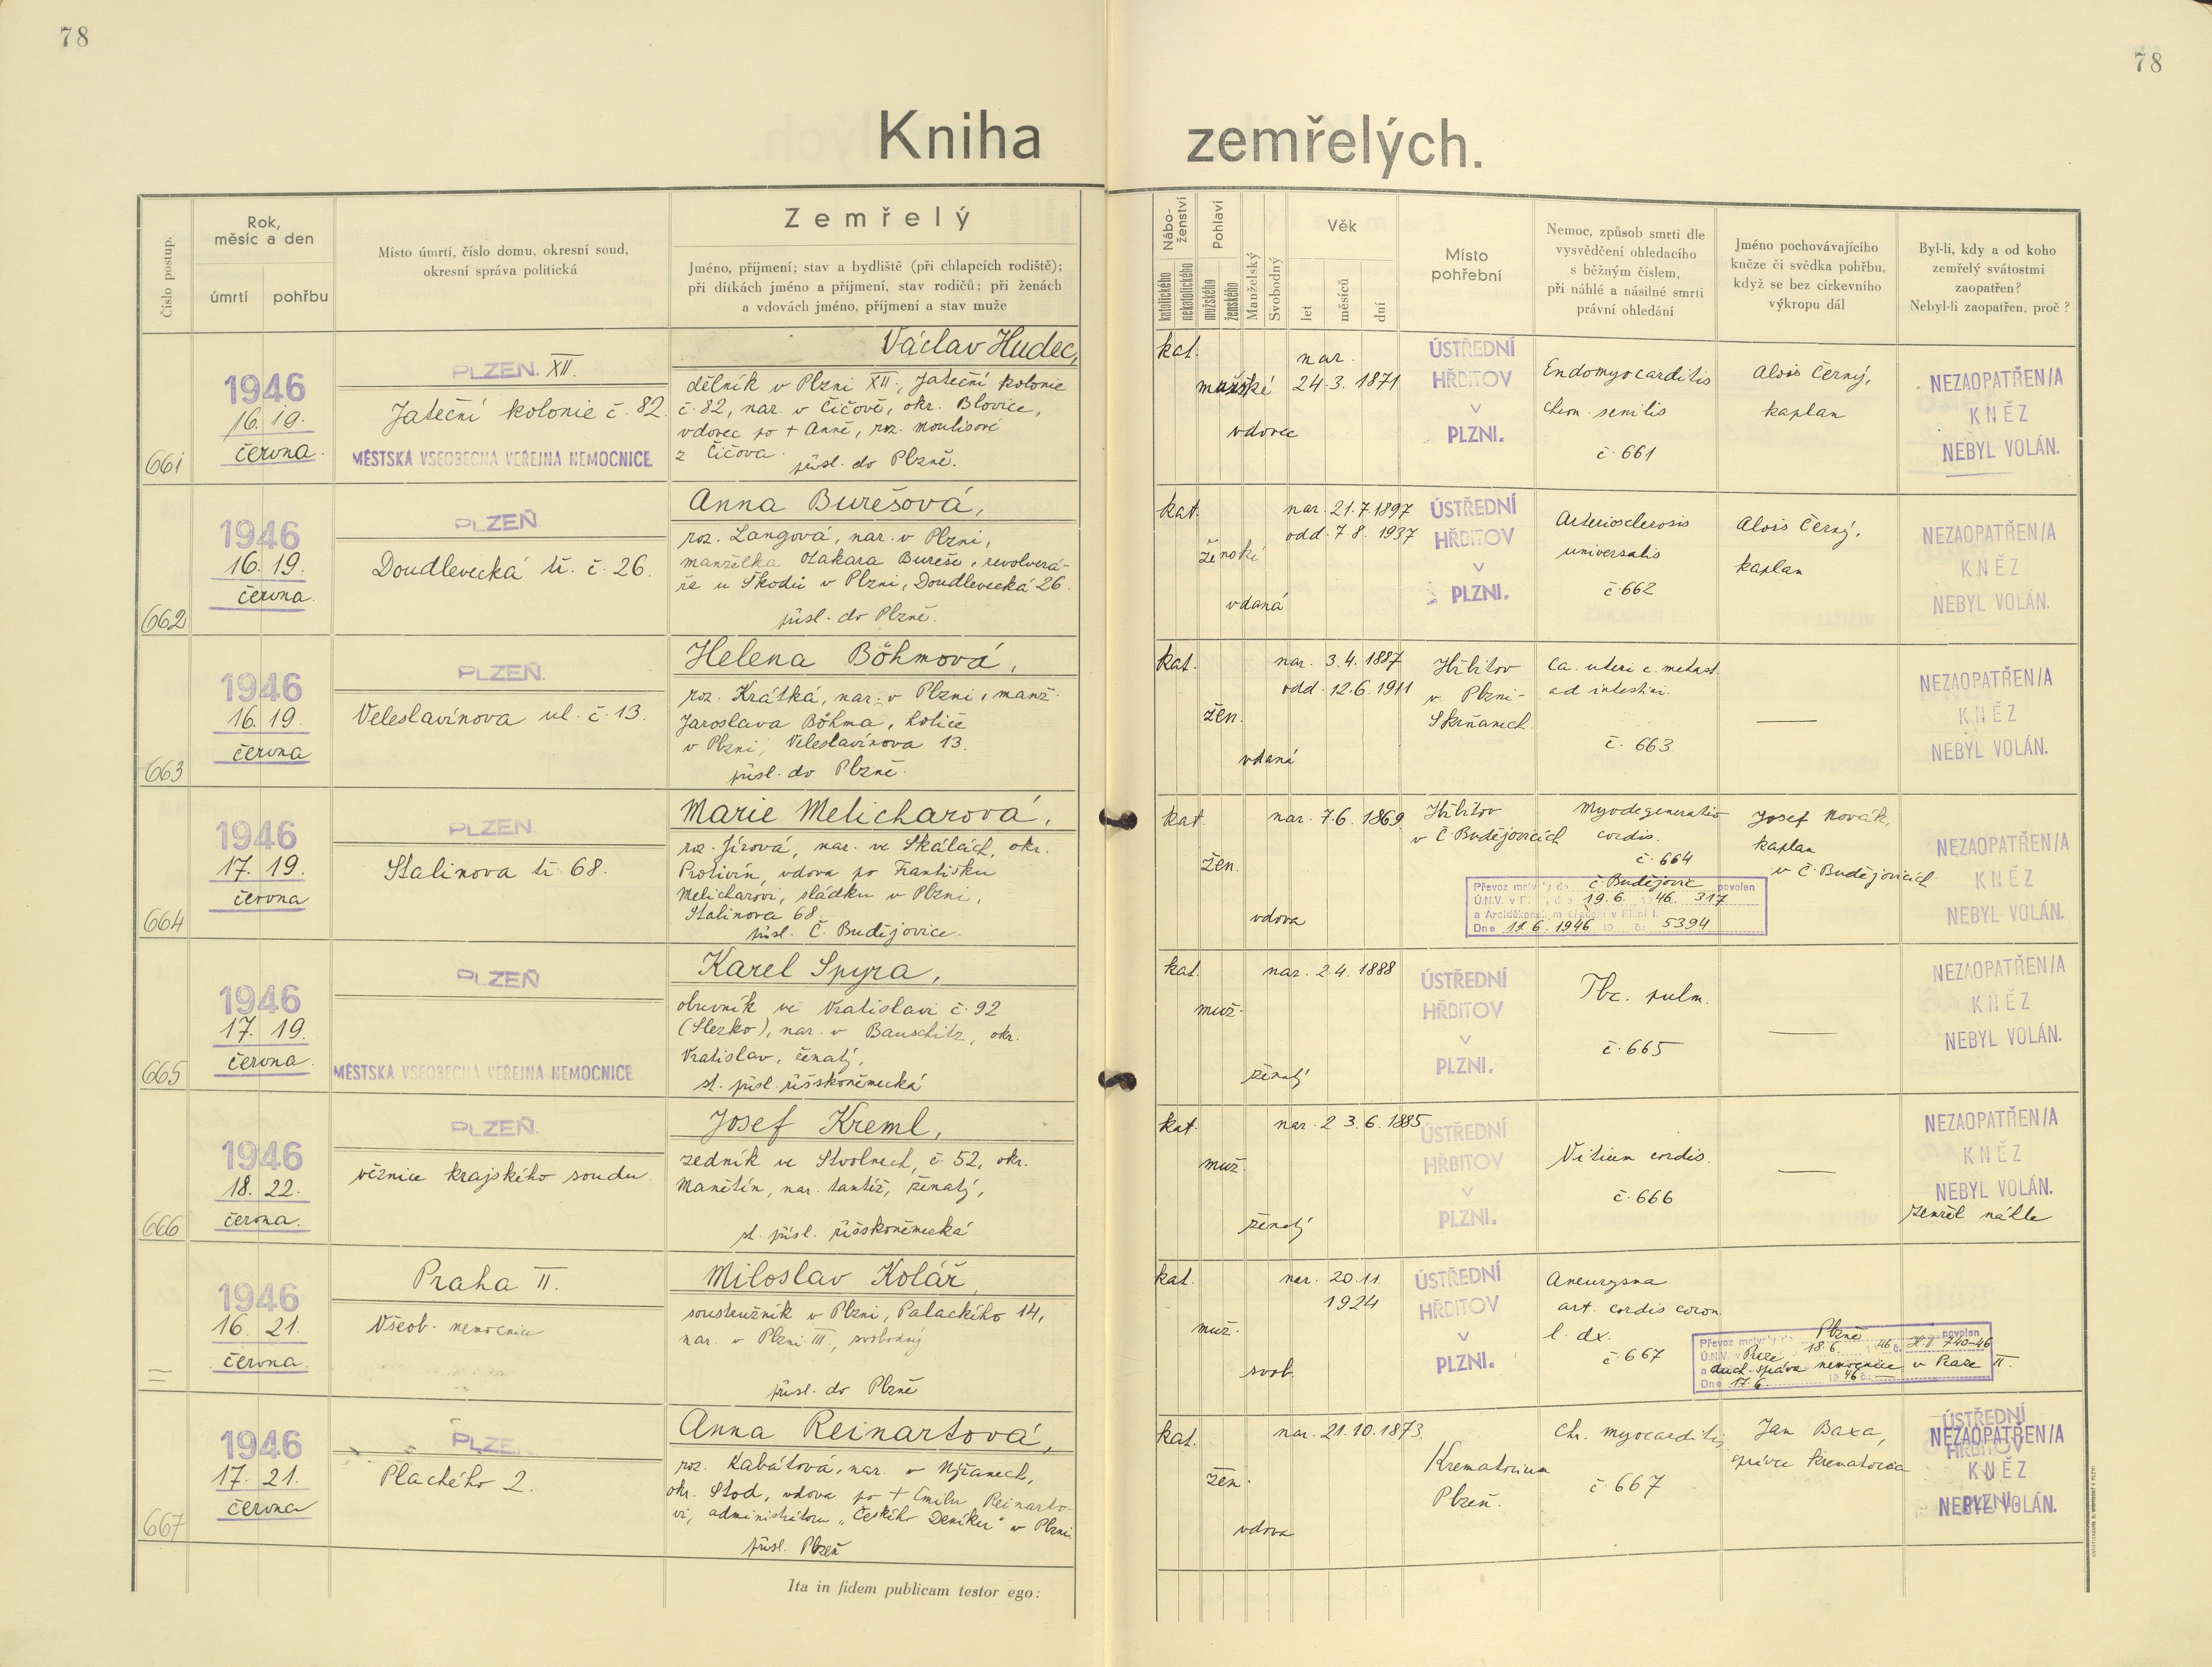 78
78
Kniha zemřelých.
Číslo postup.
Rok,
měsíc a den
úmrtí
pohřbu
Místo úmrtí, číslo domu, okresní soud,
okresní správa politická
Zemřelý
Jméno, příjmení; stav a bydliště (při chlapcích rodiště);
při dítkách jméno a příjmení, stav rodičů; při ženách
a vdovách jméno, příjmení a stav muže
Nábo-
ženství
katolického
nekatolického
Pohlaví
mužského
ženského
Manželský
Svobodný
Věk
let
měsíců
dní
Místo
pohřební
Nemoc, způsob smrti dle
vysvědčení ohledacího
s běžným číslem,
při náhlé a násilné smrti
právní ohledání
Jméno pochovávajícího
kněze či svědka pohřbu,
když se bez církevního
výkropu dál
Byl-li, kdy a od koho
zemřelý svátostmi
zaopatřen?
Nebyl-li zaopatřen, proč?
661
1946
16. 19.
června.
PLZEŇ. XII.
Jateční kolonie č. 82.
MĚSTSKÁ VŠEOBECNÁ VEŘEJNÁ NEMOCNICE
Václav Hudec,
dělník v Plzni XII., Jateční kolonie
č. 82, nar. v Čičově, okr. Blovice,
vdovec po + Anně, roz. Moulisové
z Čičova.
přísl. do Plzně.
kat.
mužské
vdovec
nar.
24. 3. 1871
ÚSTŘEDNÍ
HŘBITOV
V
PLZNI.
Endomyocarditis
chron. senilis
č. 661
Alois Černý,
kaplan
NEZAOPATŘEN/A
KNĚZ
NEBYL VOLÁN.
662
1946
16. 19.
června.
PLZEŇ
Doudlevecká tř. č. 26.
Anna Burešová,
roz. Langová, nar. v Plzni,
manželka Otakara Bureše, revolverá-
ře u Škodů v Plzni, Doudlevecká 26.
přísl. do Plzně.
kat.
ženské
vdaná
nar. 21. 7. 1897
odd. 7. 8. 1937
ÚSTŘEDNÍ
HŘBITOV
V
PLZNI.
Arteriosclerosis
universalis
č. 662
Alois Černý,
kaplan
NEZAOPATŘEN/A
KNĚZ
NEBYL VOLÁN.
663
1946
16. 19.
června
PLZEŇ.
Veleslavínova ul. č. 13.
Helena Böhmová,
roz. Krátká, nar. v Plzni, manž.
Jaroslava Böhma, holiče
v Plzni, Veleslavínova 13.
přísl. do Plzně.
kat.
žen.
vdaná
nar. 3. 4. 1887
odd. 12. 6. 1911
Hřbitov
v Plzni-
Skvrňanech.
Ca. uteri c. metast.
ad intestini.
č. 663
NEZAOPATŘEN/A
KNĚZ
NEBYL VOLÁN.
664
1946
17. 19.
června
PLZEŇ
Stalinova tř. 68.
Marie Melicharová,
roz. Jírová, nar. ve Skálách, okr.
Protivín, vdova po Františku
Melicharovi, sládku v Plzni,
Stalinova 68.
přísl. Č. Budějovice.
kat.
žen.
vdova
nar. 7. 6. 1869
Hřbitov
v Č. Budějovicích
Myodegeneratio
cordis.
č. 664
Josef Novák,
kaplan
v Č. Budějovicích
Převoz mrtvoly do Č. Budějovic povolen
Ú.N.V. v Plzni, dne 19. 6. 1946. 317
a Arciděkanským úřadem v Plzni I.
Dne 17. 6. 1946 19 č. 5394
NEZAOPATŘEN/A
KNĚZ
NEBYL VOLÁN.
665
1946
17. 19.
června.
PLZEŇ
MĚSTSKÁ VŠEOBECNÁ VEŘEJNÁ NEMOCNICE
Karel Spyra,
obuvník ve Vratislavi č. 92
(Slezko), nar. v Bauschitz, okr.
Vratislav, ženatý,
st. přísl. říšskoněmecká
kat.
muž.
ženatý
nar. 2. 4. 1888
ÚSTŘEDNÍ
HŘBITOV
V
PLZNI.
Tbc. pulm.
č. 665
NEZAOPATŘEN/A
KNĚZ
NEBYL VOLÁN.
666
1946
18. 22.
června.
PLZEŇ.
věznice krajského soudu
Josef Kreml,
zedník ve Stvolnech, č. 52, okr.
Manětín, nar. tamtéž, ženatý,
st. přísl. říšskoněmecká
kat.
muž.
ženatý
nar. 23. 6. 1885
ÚSTŘEDNÍ
HŘBITOV
V
PLZNI.
Vitium cordis.
č. 666
NEZAOPATŘEN/A
KNĚZ
NEBYL VOLÁN.
zemřel náhle
1946
16. 21.
června.
Praha II.
Všeob. nemocnice
Miloslav Kolář,
soustružník v Plzni, Palackého 14,
nar. v Plzni III., svobodný
přísl. do Plzně
kat.
muž.
svob.
nar. 20. 11.
1924
ÚSTŘEDNÍ
HŘBITOV
V
PLZNI.
Aneurysma
art. cordis coron
l. dx.
č. 667
Převoz mrtvoly do Plzně povolen
Ú.N.V. v Praze 18. 6. 1946 č. H II 740-46
a duch. správa nemocnice v Praze II.
Dne 17. 6. 1946 č.
667
1946
17. 21.
června
PLZEŇ
Plachého 2.
Anna Reinartová,
roz. Kabátová, nar. v Nýřanech,
okr. Stod, vdova po + Emilu Reinarto-
vi, administrátoru „Českého Deníku" v Plzni.
přísl. Plzeň
kat.
žen.
vdova
nar. 21. 10. 1873
Krematorium
Plzeň.
Ch. myocarditis
č. 667
Jan Baxa,
správce krematoria
ÚSTŘEDNÍ
NEZAOPATŘEN/A
HŘBITOV
KNĚZ
V
NEBYL VOLÁN.
PLZNI.
Ita in fidem publicam testor ego: